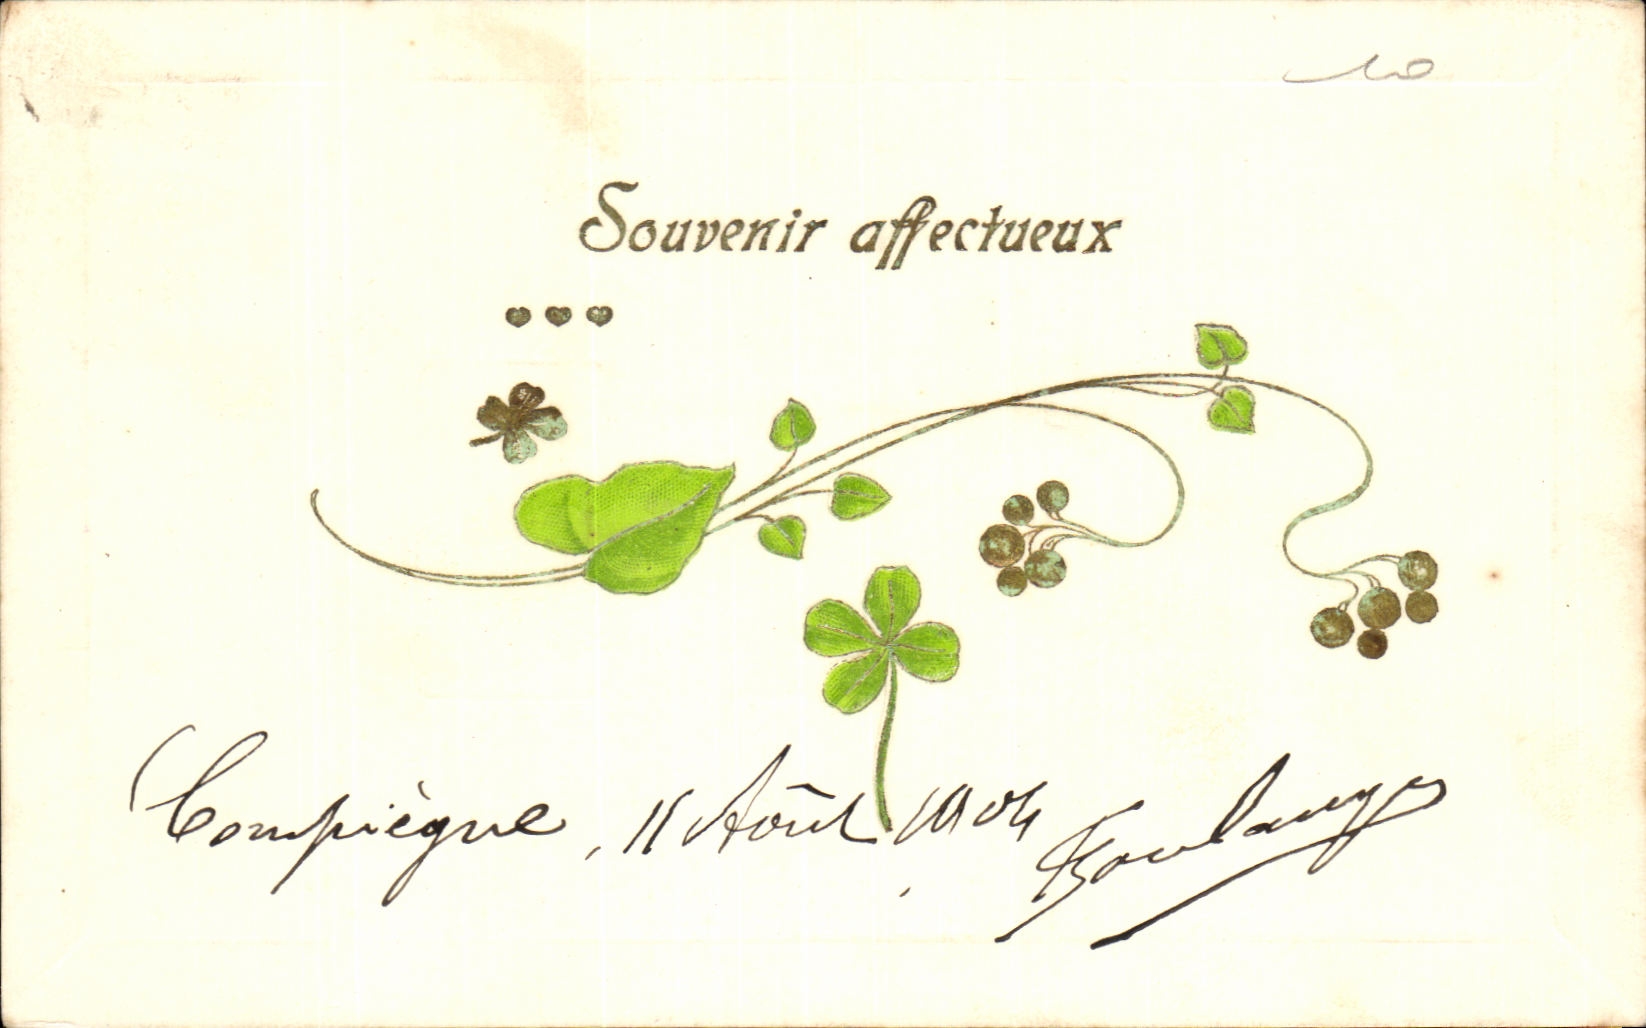 Souvenir affectueux
Compiègne, 11 Août 1904
Boulanger